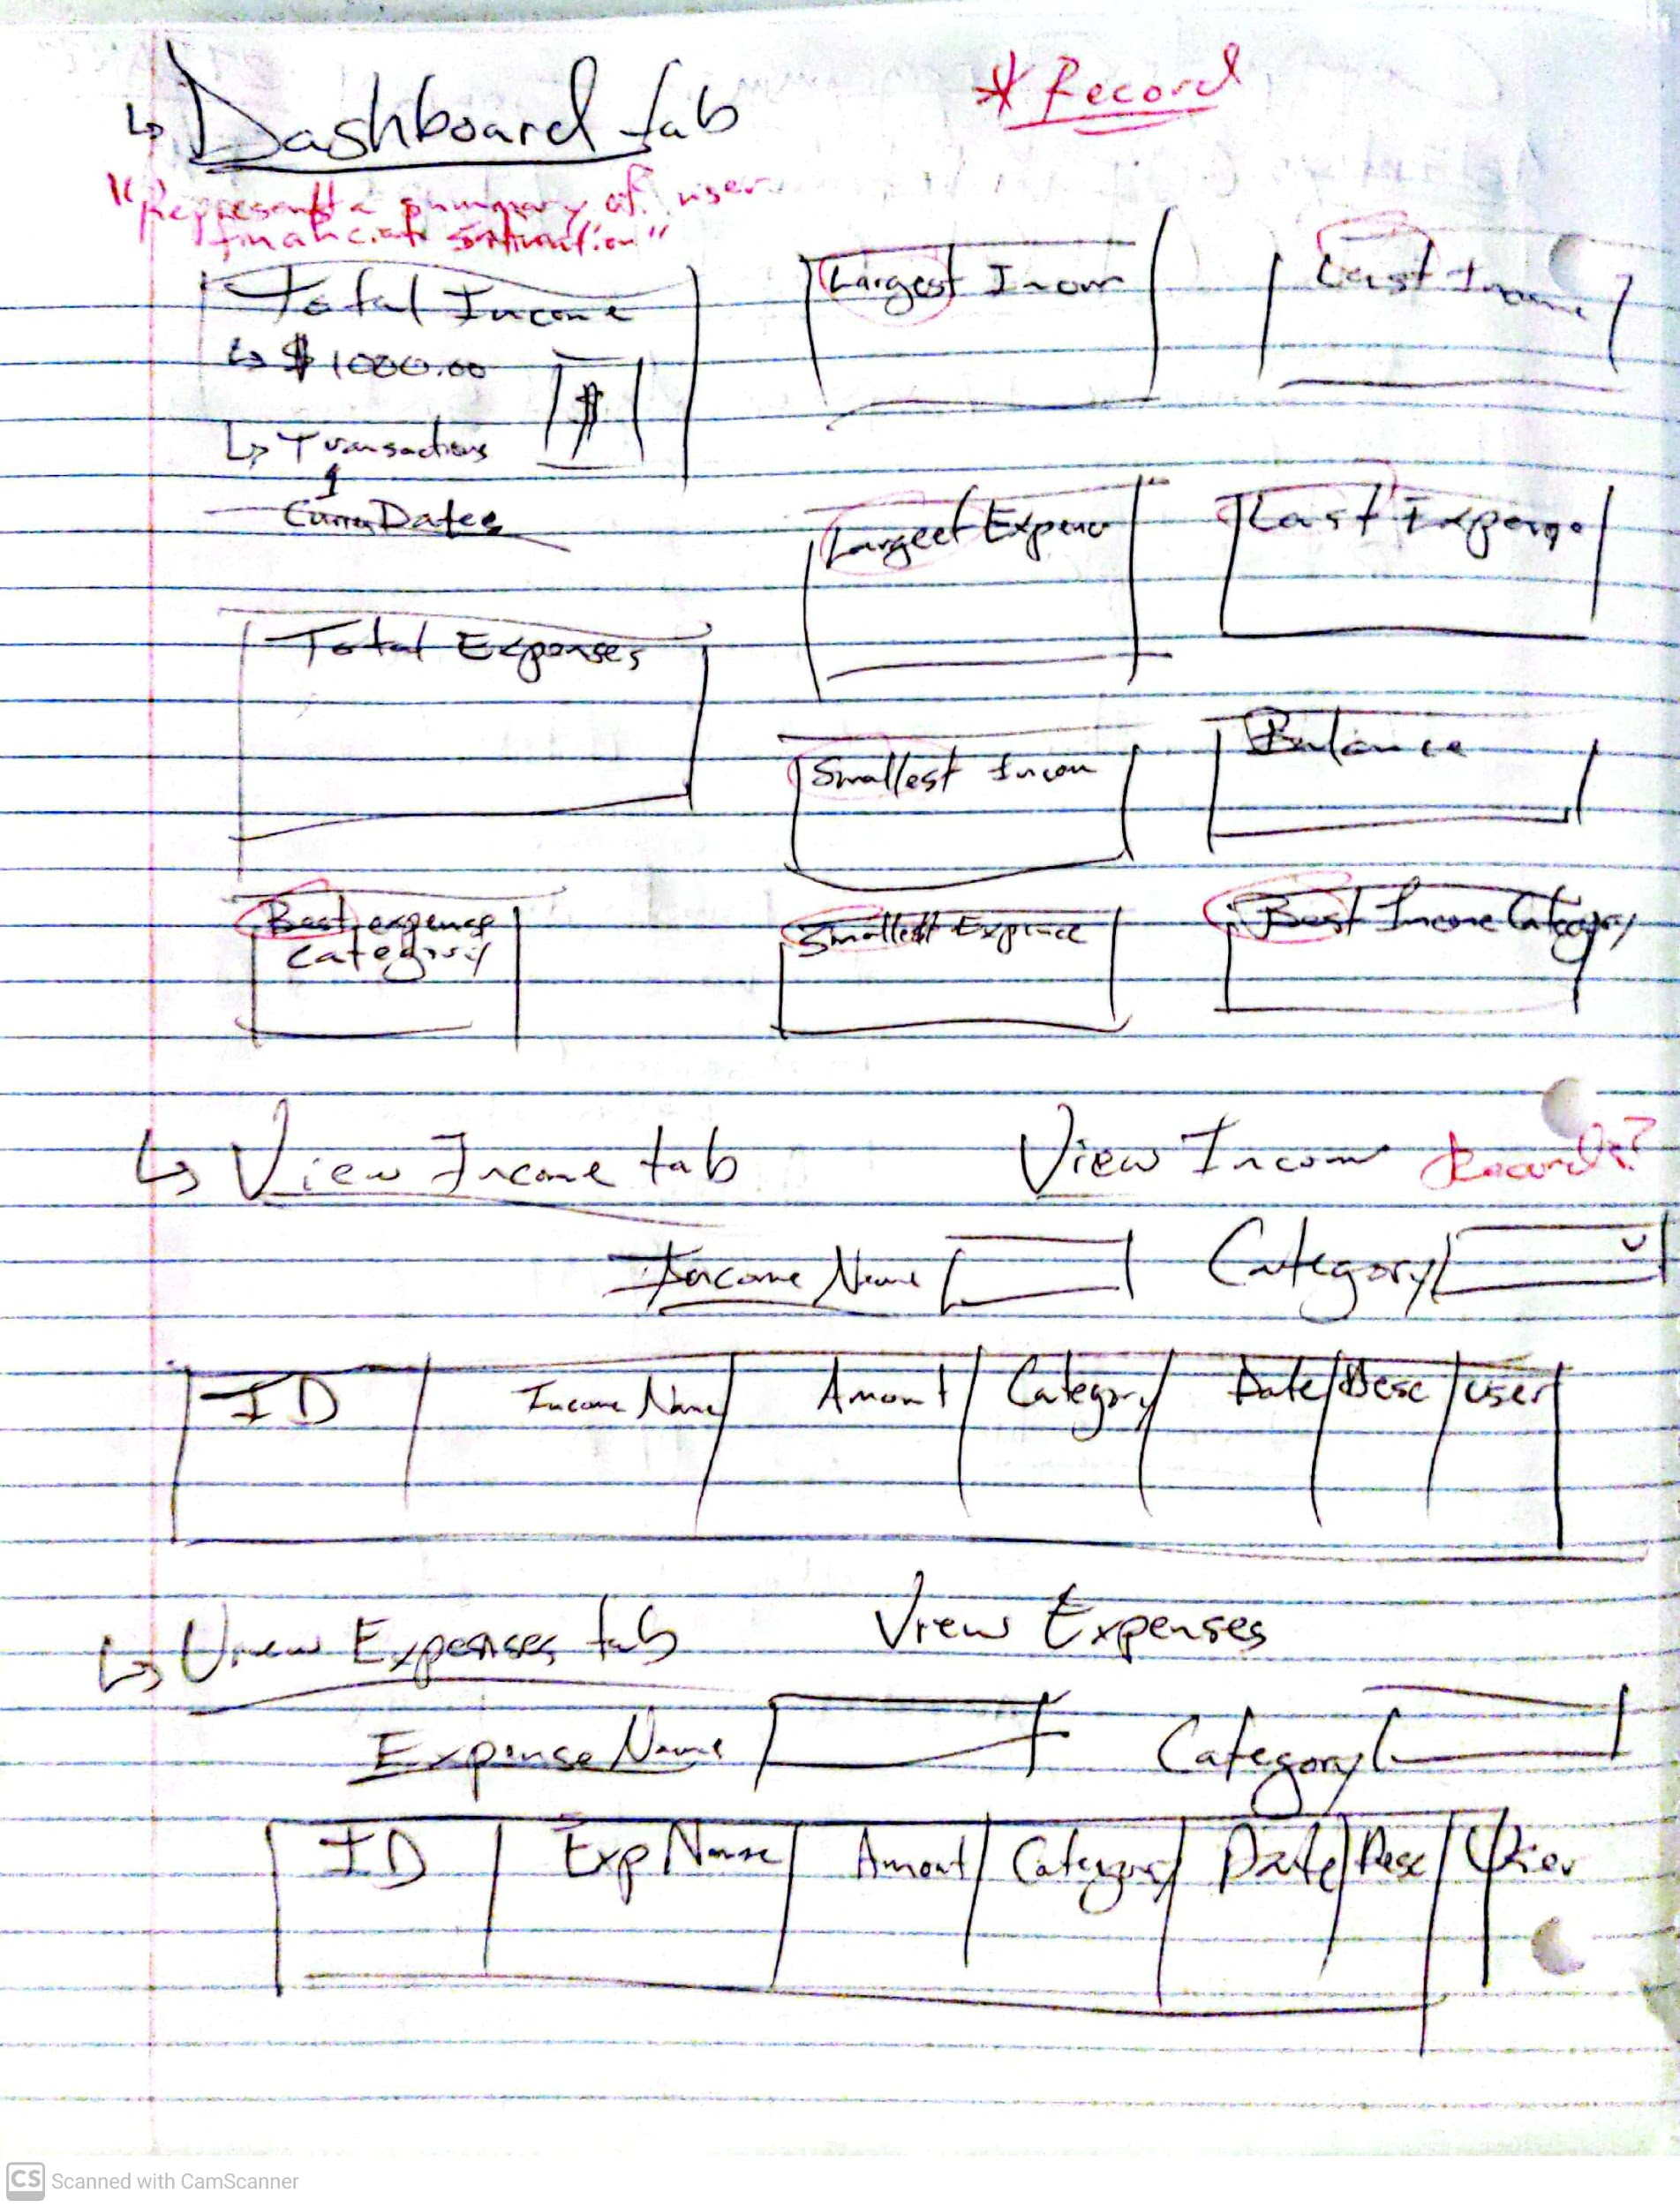 ↳ Dashboard tab
* Record
"Represents a summary of user
financial situation"
Total Income
↳ $1000.00
$
↳ Transactions
1
Dates
Largest Incom
Last Income
Largest Expense
Last Expense
Total Expenses
Smallest Incom
Balance
Best expense
Category
Smallest Expence
Best Income Category
↳ View Income tab
View Income Records?
Income Name
Category
ID
Income Name
Amount
Category
Date
Desc
user
↳ View Expenses tab
View Expenses
Expense Name
Category
ID
Exp Name
Amount
Category
Date
Desc
User
CS Scanned with CamScanner